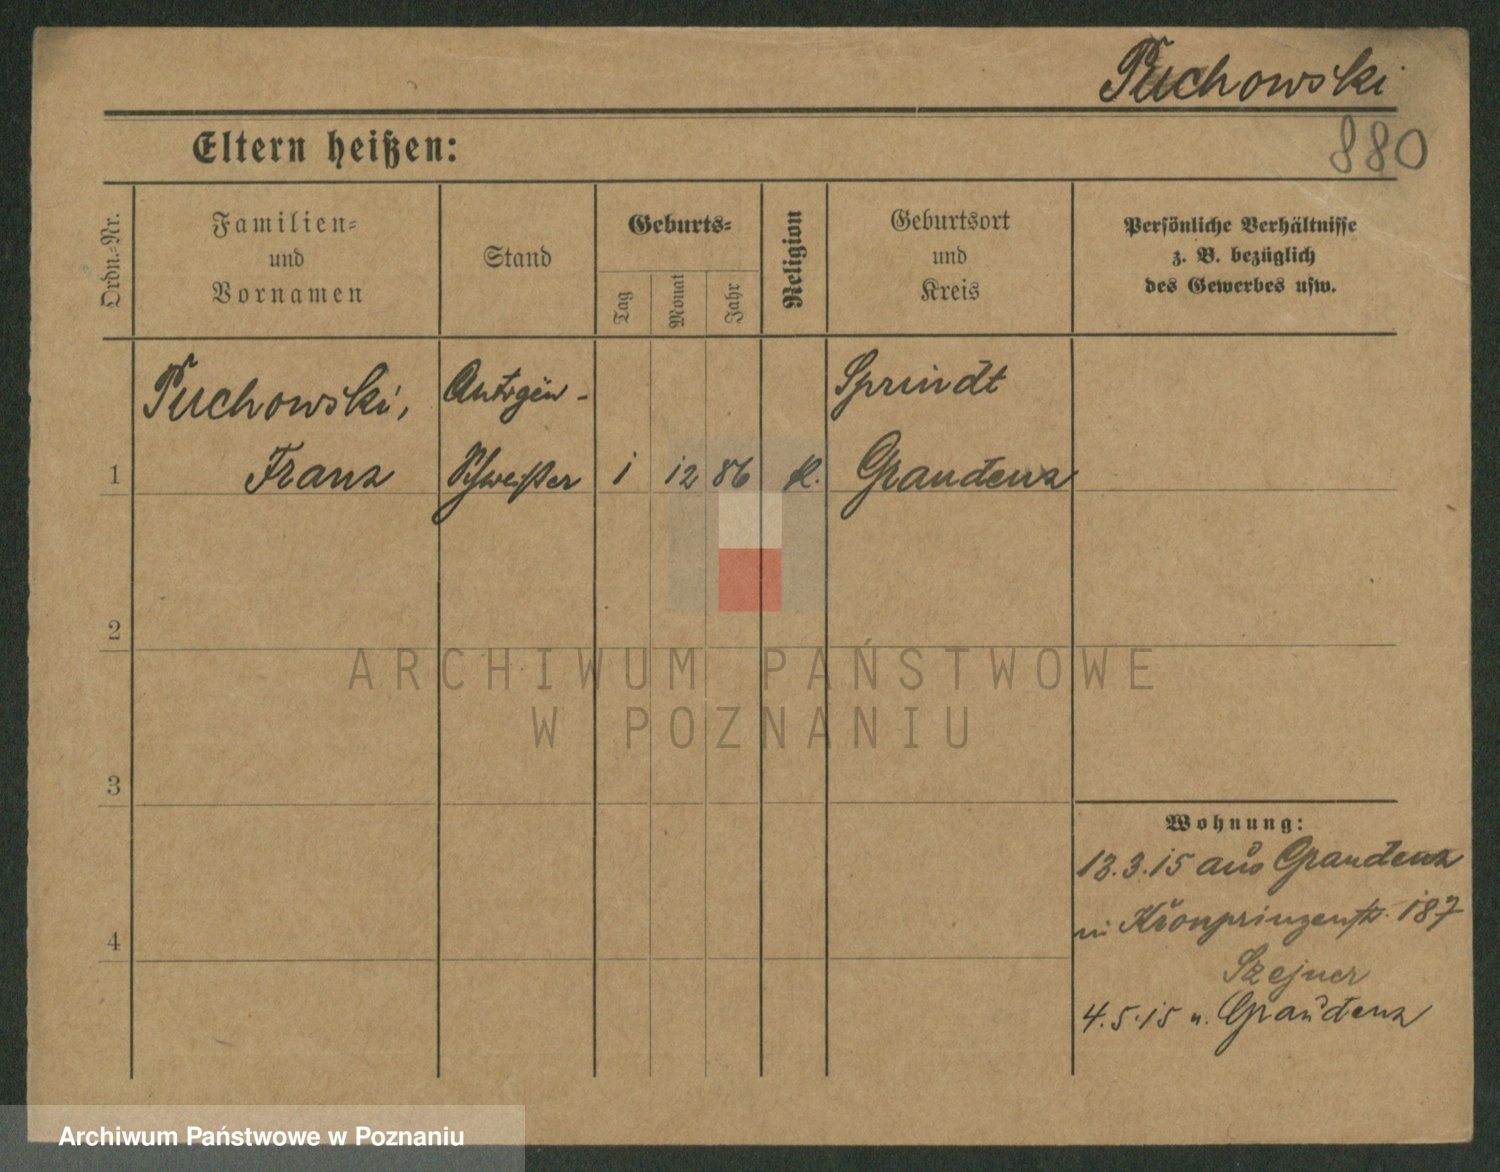 Puchowski
Eltern heißen:
880
Ordn.-Nr.
Familien-
und
Vornamen
Stand
Geburts-
Tag
Monat
Jahr
Religion
Geburtsort
und
Kreis
Persönliche Verhältnisse
z. B. bezüglich
des Gewerbes usw.
Puchowski,
Franz
Autogen-
Schweißer
1
1 12 86 K.
Graudenz
2
3
4
Wohnung:
13.3.15 aus Graudenz
in Kronprinzenstr. 187
Szejner
4.5.15 n. Graudenz
ARCHIWUM PAŃSTWOWE
W POZNANIU
Archiwum Państwowe w Poznaniu